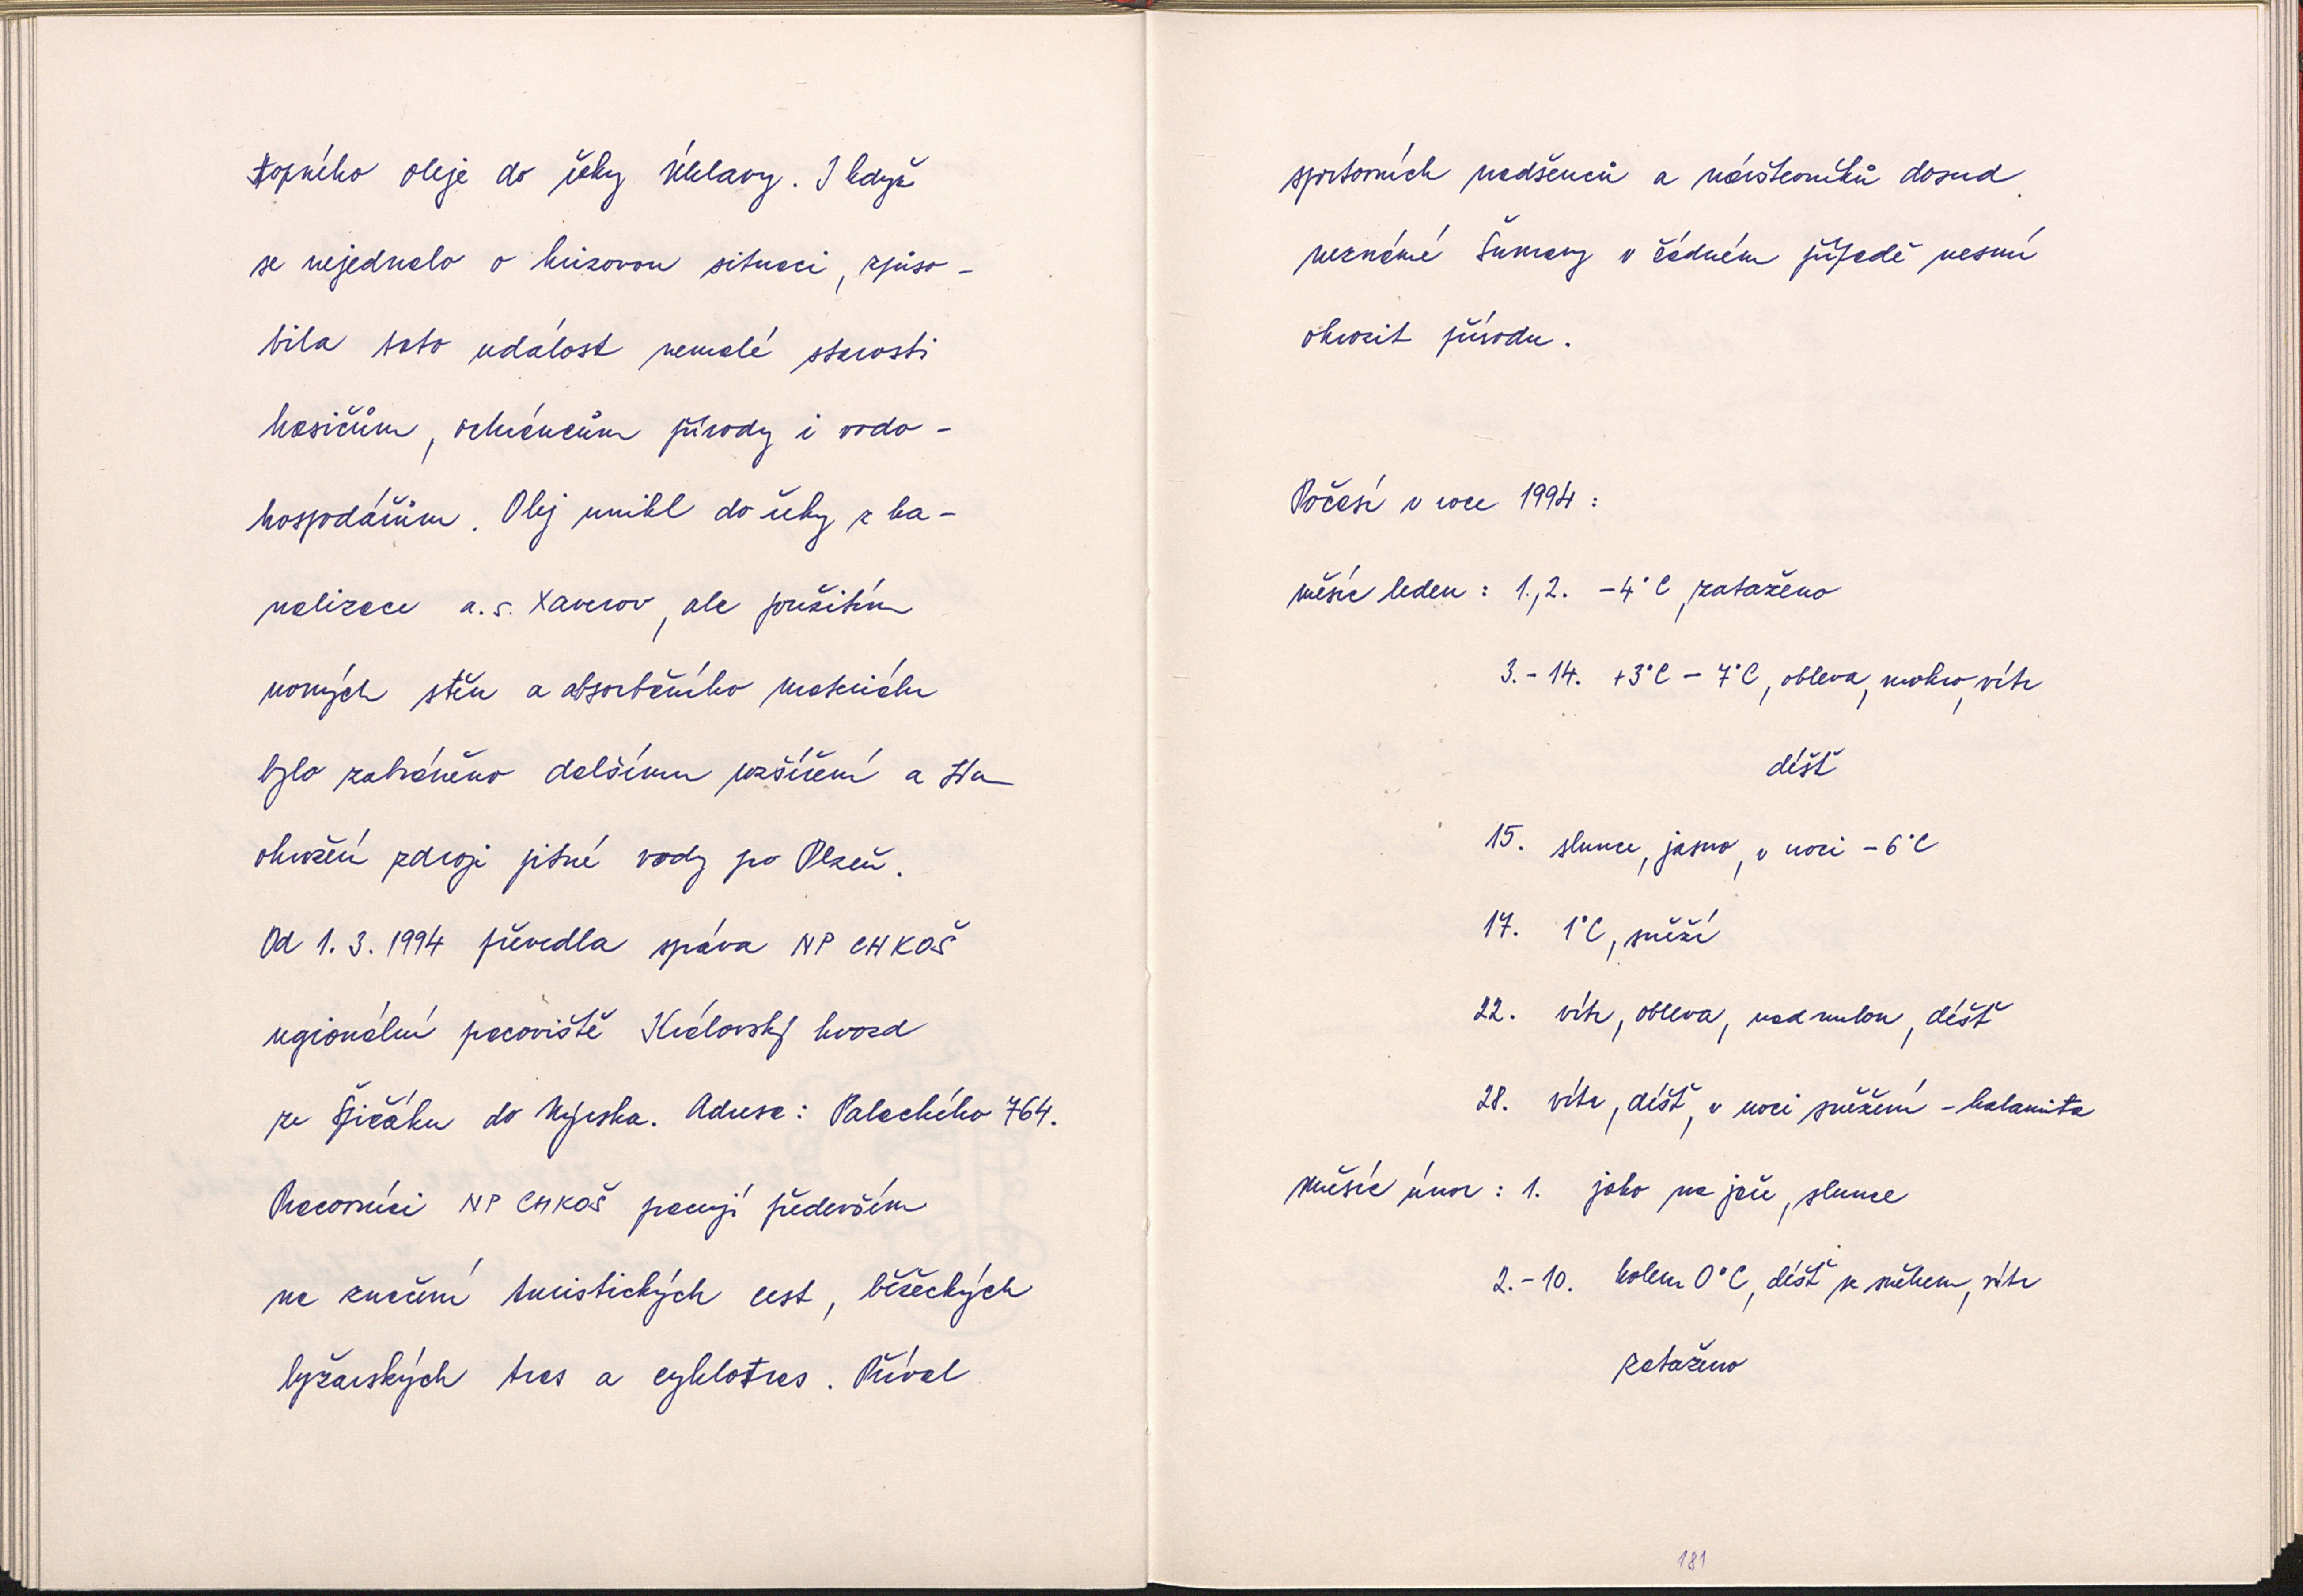 topného oleje do řeky Úhlavy. I když
se nejednalo o krizovou situaci, způso-
bila tato událost nemalé starosti
hasičům, ochráncům přírody i vodo-
hospodářům. Olej unikl do řeky z ka-
nalizace a.s. Xaverov, ale použitím
norných stěn a absorbčního materiálu
bylo zabráněno dalšímu rozšíření a
ohrožení zdroji pitné vody pro Plzeň.
Od 1. 3. 1994 převedla správa NP CHKOŠ
regionální pracoviště Královský hvozd
ze Špičáku do Nýrska. Adresa: Palackého 764.
Pracovníci NP CHKOŠ pracují především
na značení turistických cest, běžeckých
lyžarských tras a cyklotras. Příval
sportovních nadšenců a návštevníků dosud
neznámé Šumavy v žádném případě nesmí
ohrozit přírodu.
Počasí v roce 1994:
měsíc leden: 1.,2. -4°C, zataženo
3.-14. +3°C - 7°C, obleva, mokro, vítr
déšť
15. slunce, jasno, v noci -6°C
17. 1°C, sněží
22. vítr, obleva, nad nulou, déšť
28. vítr, déšť, v noci sněžení - kalamita
měsíc únor: 1. jako na jaře, slunce
2.-10. kolem 0°C, déšť se sněhem, vítr
zataženo
181